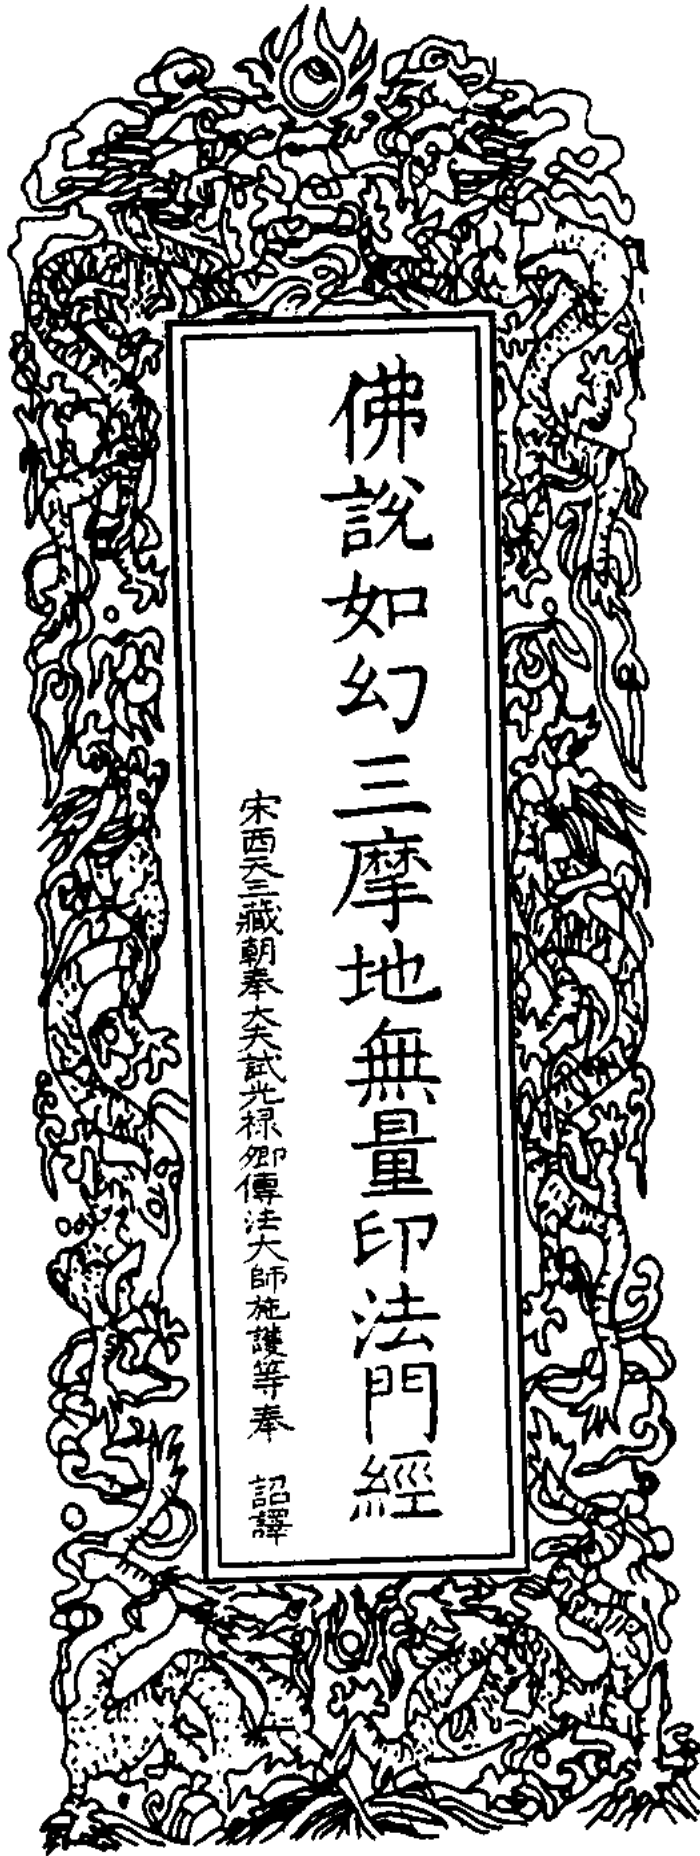 佛說如幻三摩地無量印法門經
宋西天三藏朝奉大夫試光祿卿傳法大師施護等奉　詔譯